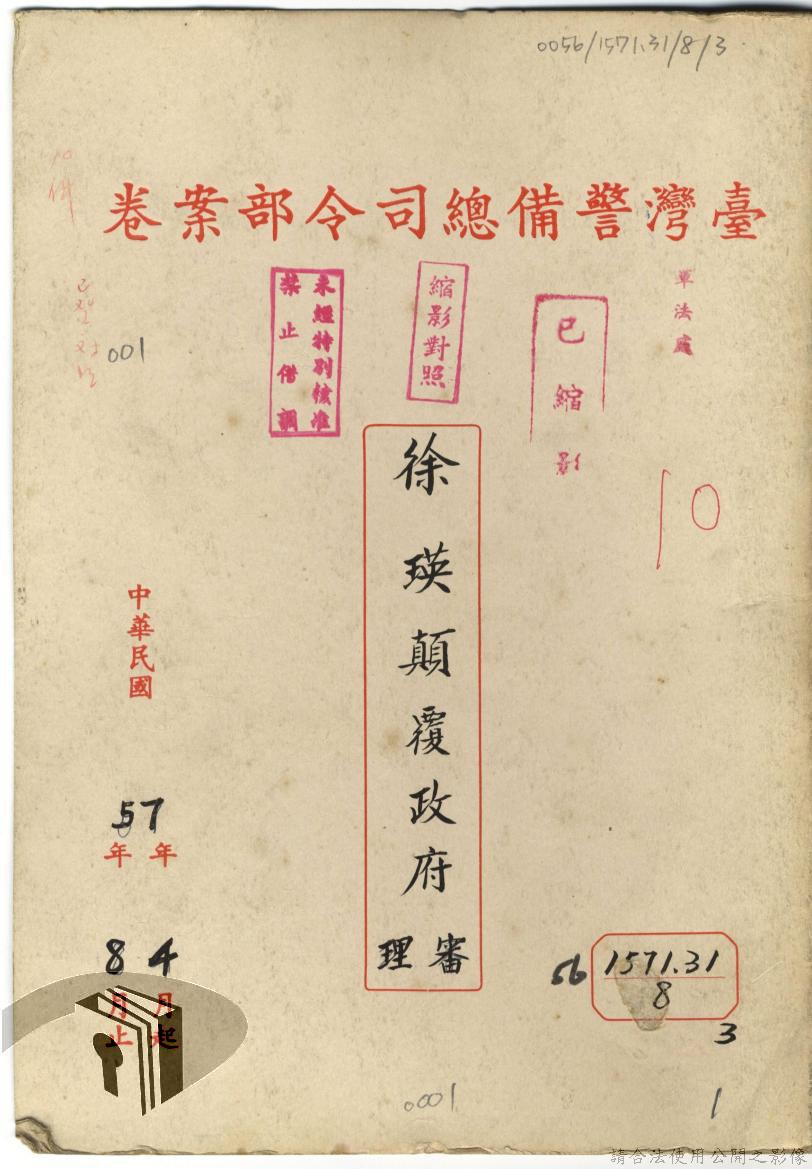 0056/1571.31/8/3
臺灣警備總司令部案卷
軍法處
已縮影
縮影對照
未經特別核准
禁止借調
10
001
徐瑛顛覆政府
審理
中華民國
57
年
年
4
月起
8
月止
56
1571.31
8
3
1
0001
請合法使用公開之影像